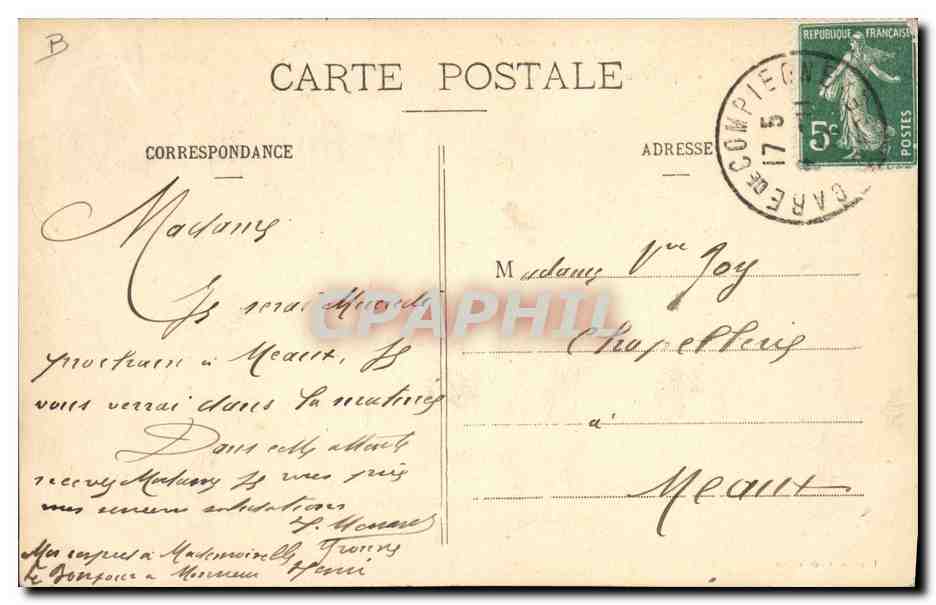 B
CARTE POSTALE
CORRESPONDANCE
ADRESSE
REPUBLIQUE FRANÇAISE
5c
POSTES
GARE DE COMPIEGNE
17 5
Madame
Je serai Mercredi
prochain à Meaux, Je
vous verrai dans la matinée
Dans cette attente
recevez Madame je vous prie
mes sincères salutations
Mes respects à Mademoiselle Yvonne
le Bonjour à Monsieur Henri
Madame Vve Joy
Chapellerie
à
Meaux
CPAPHIL